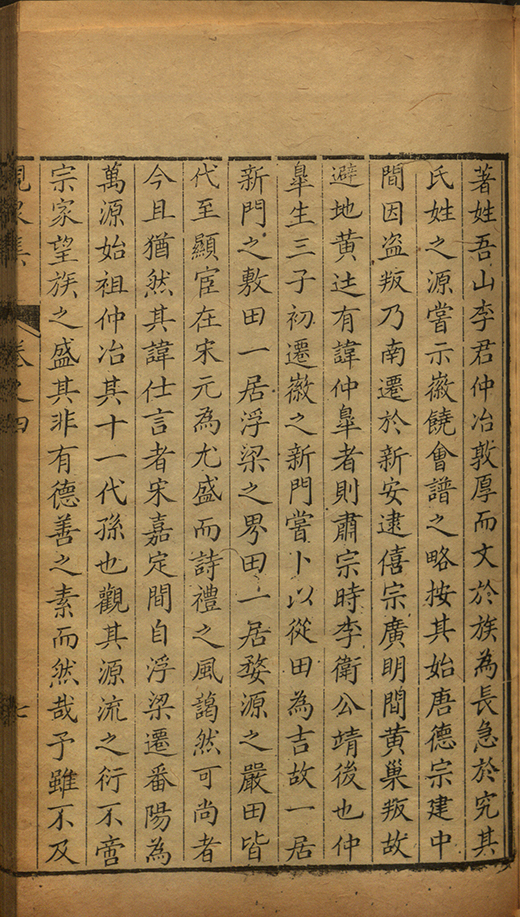 著姓吾山李君仲冶敦厚而文於族為長急於究其
氏姓之源嘗示徽饒會譜之略按其始唐德宗建中
間因盗叛乃南遷於新安逮僖宗廣明間黄巢叛故
避地黄迕有諱仲臯者則肅宗時李衛公靖後也仲
臯生三子初遷徽之新門嘗卜以從田為吉故一居
新門之敷田一居浮梁之界田一居婺源之嚴田皆
代至顯宦在宋元為尤盛而詩禮之風藹然可尚者
今且猶然其諱仕言者宋嘉定間自浮梁遷番陽為
萬源始祖仲冶其十一代孫也觀其源流之衍不啻
宗家望族之盛其非有德善之素而然哉予雖不及
卷之四